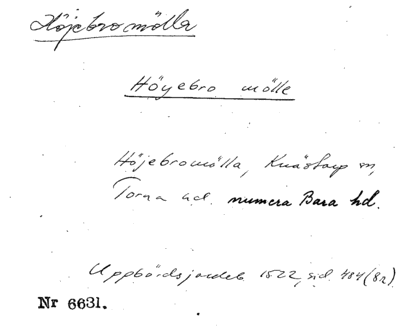 Höjebromölla
Höyebro mölle
Höjebromölla, Knästorp sn,
Torna hd. numera Bara hd.
Uppbördsjordeb. 1522, sid. 484 (8r)
Nr 6631.